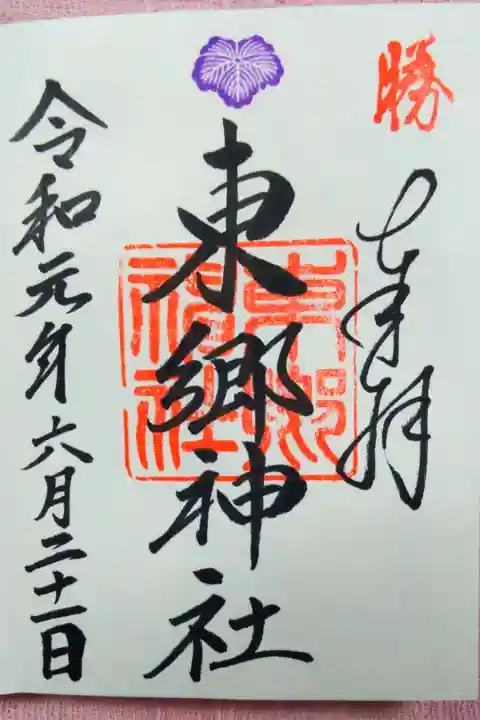 勝
奉拝
東郷神社
東郷神社
令和元年六月二十一日